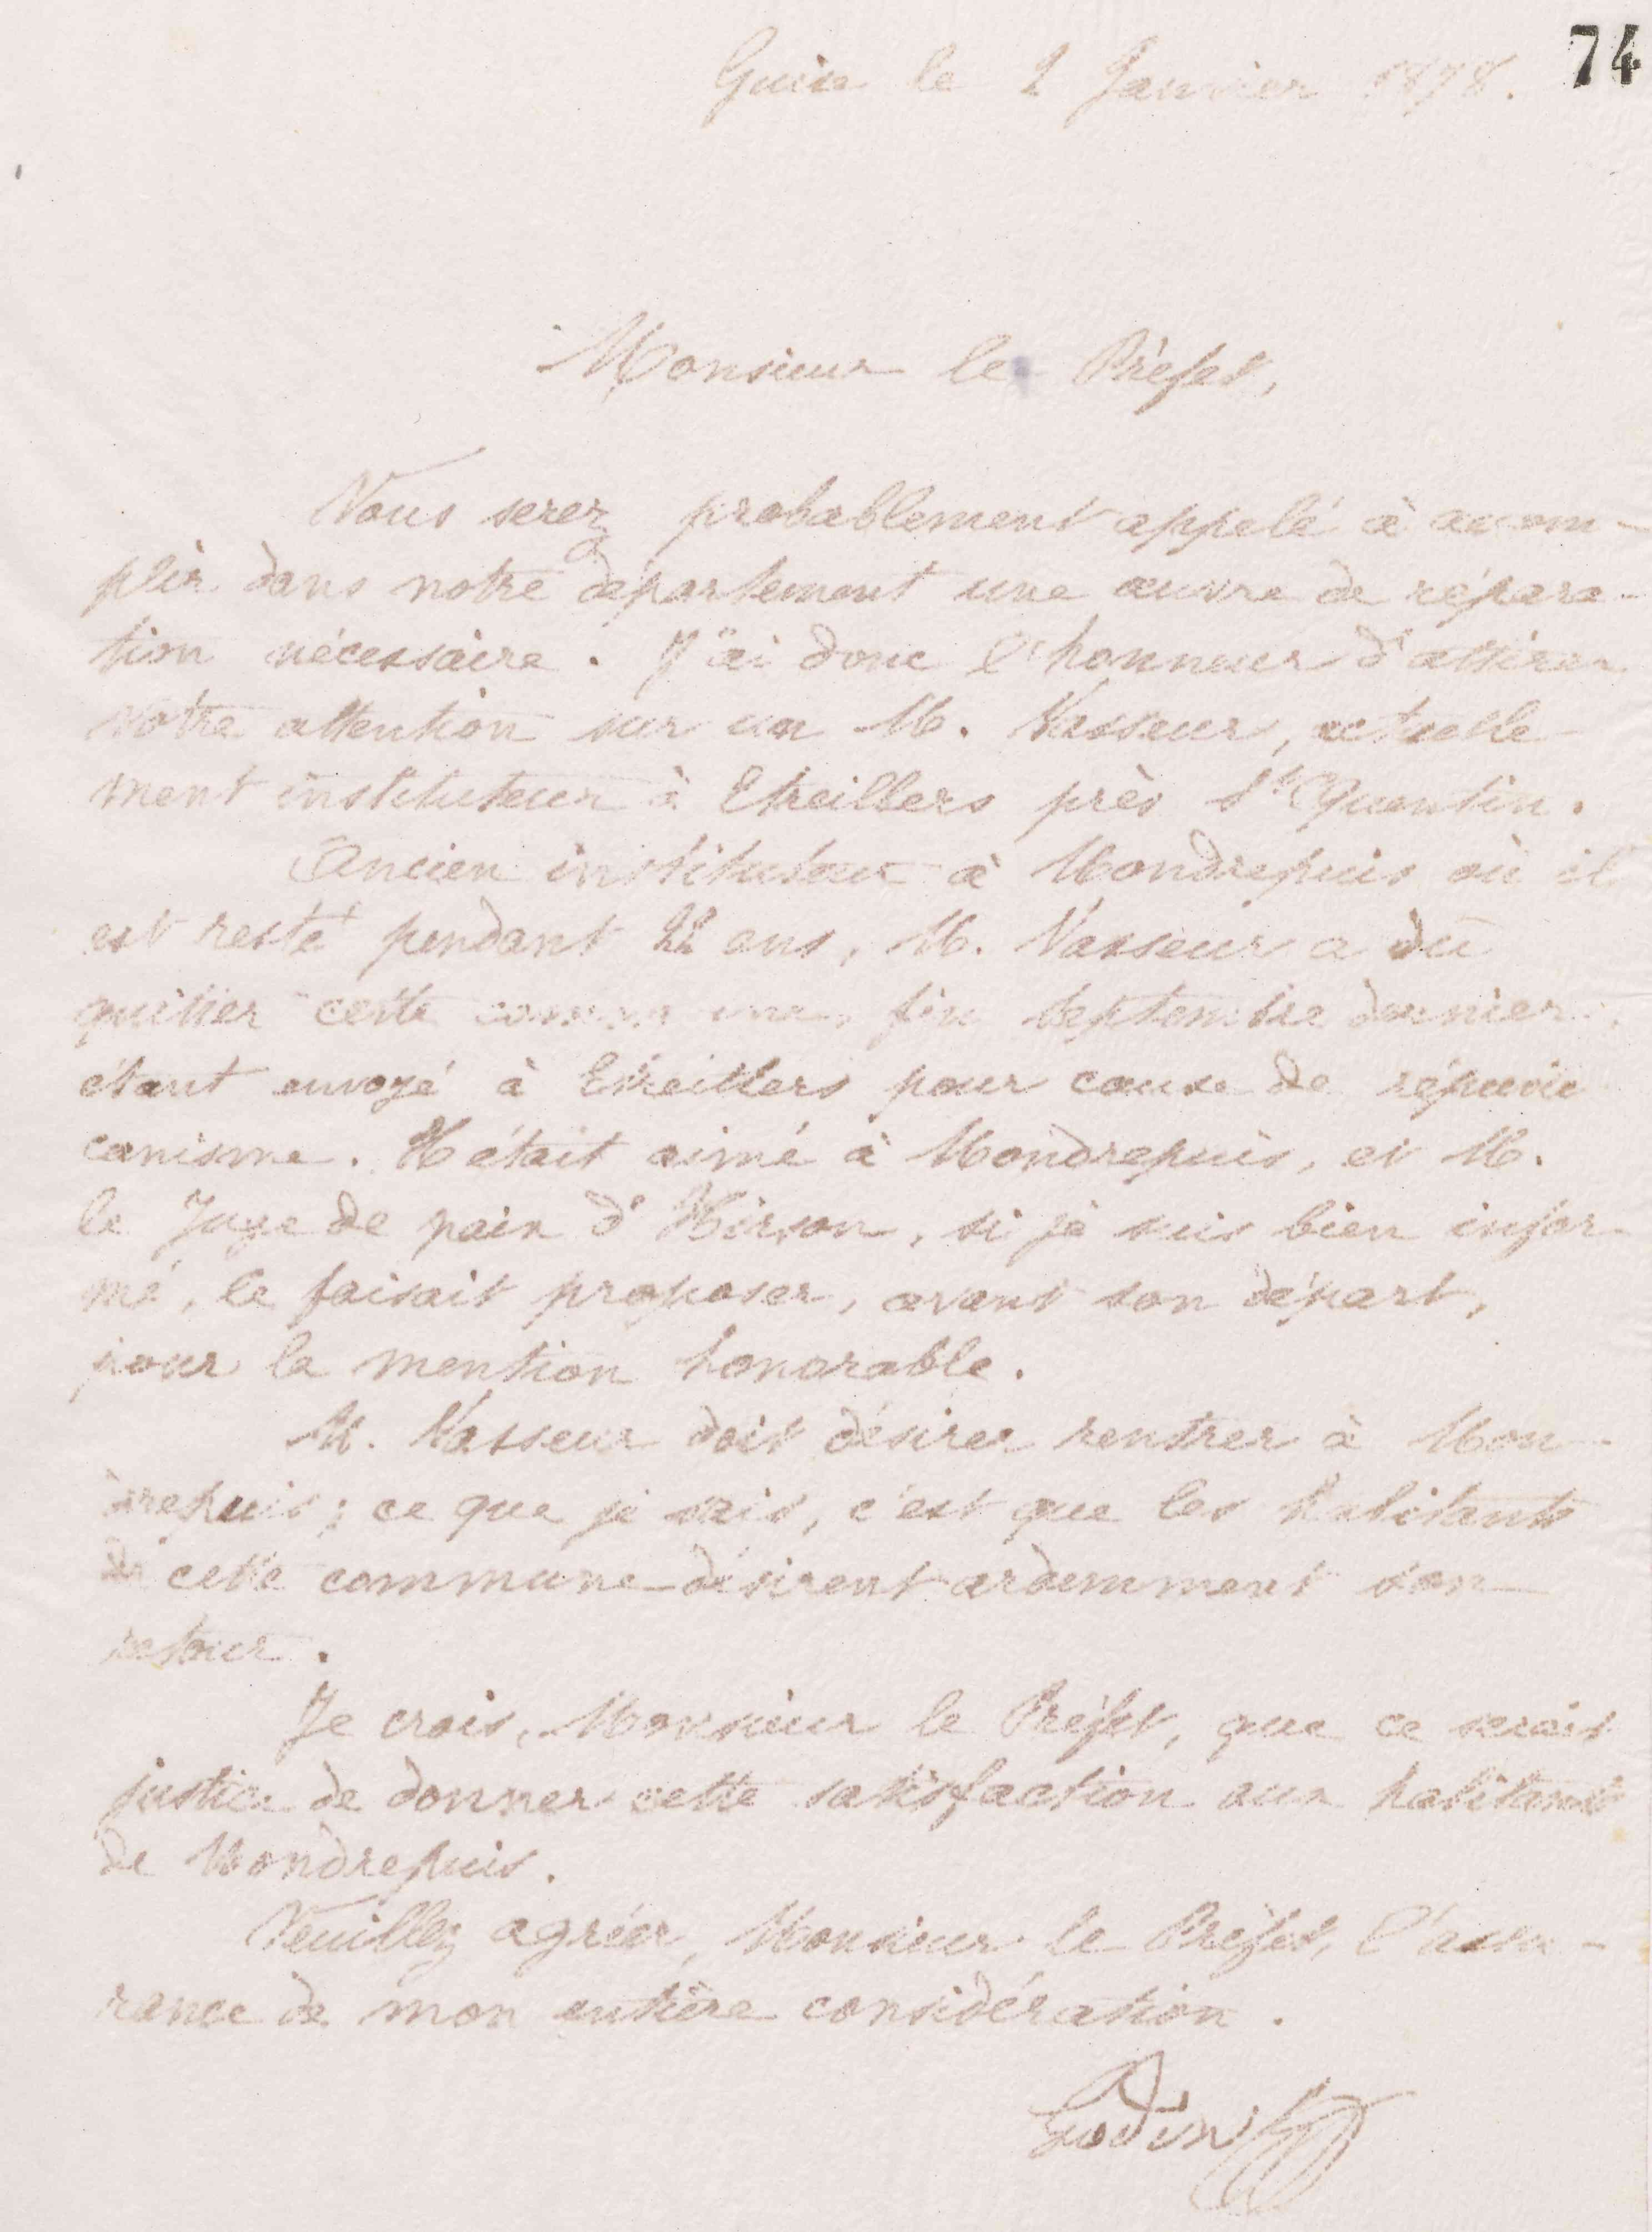 74
Guise le 2 Janvier 1878.
Monsieur le Préfet,
Vous serez probablement appelé à accom-
plir dans notre département une œuvre de répara-
tion nécessaire. J'ai donc l'honneur d'attirer
votre attention sur un M. Vasseur, actuelle
ment instituteur à Etreillers près St Quentin.
Ancien instituteur à Mondrepuis où il
est resté pendant 22 ans, M. Vasseur a dû
quitter cette commune, fin Septembre dernier,
étant envoyé à Etreillers pour cause de républi
canisme. Il était aimé à Mondrepuis, et M.
le Juge de paix d'Hirson, si je suis bien infor-
mé, le faisait proposer, avant son départ,
pour la mention honorable.
M. Vasseur doit désirer rentrer à Mon-
drepuis; ce que je sais, c'est que les habitants
de cette commune désirent ardemment son
retour.
Je crois, Monsieur le Préfet, que ce serait
justice de donner cette satisfaction aux habitants
de Mondrepuis.
Veuillez agréer, Monsieur le Préfet, l'assu-
rance de mon entière considération.
Godin